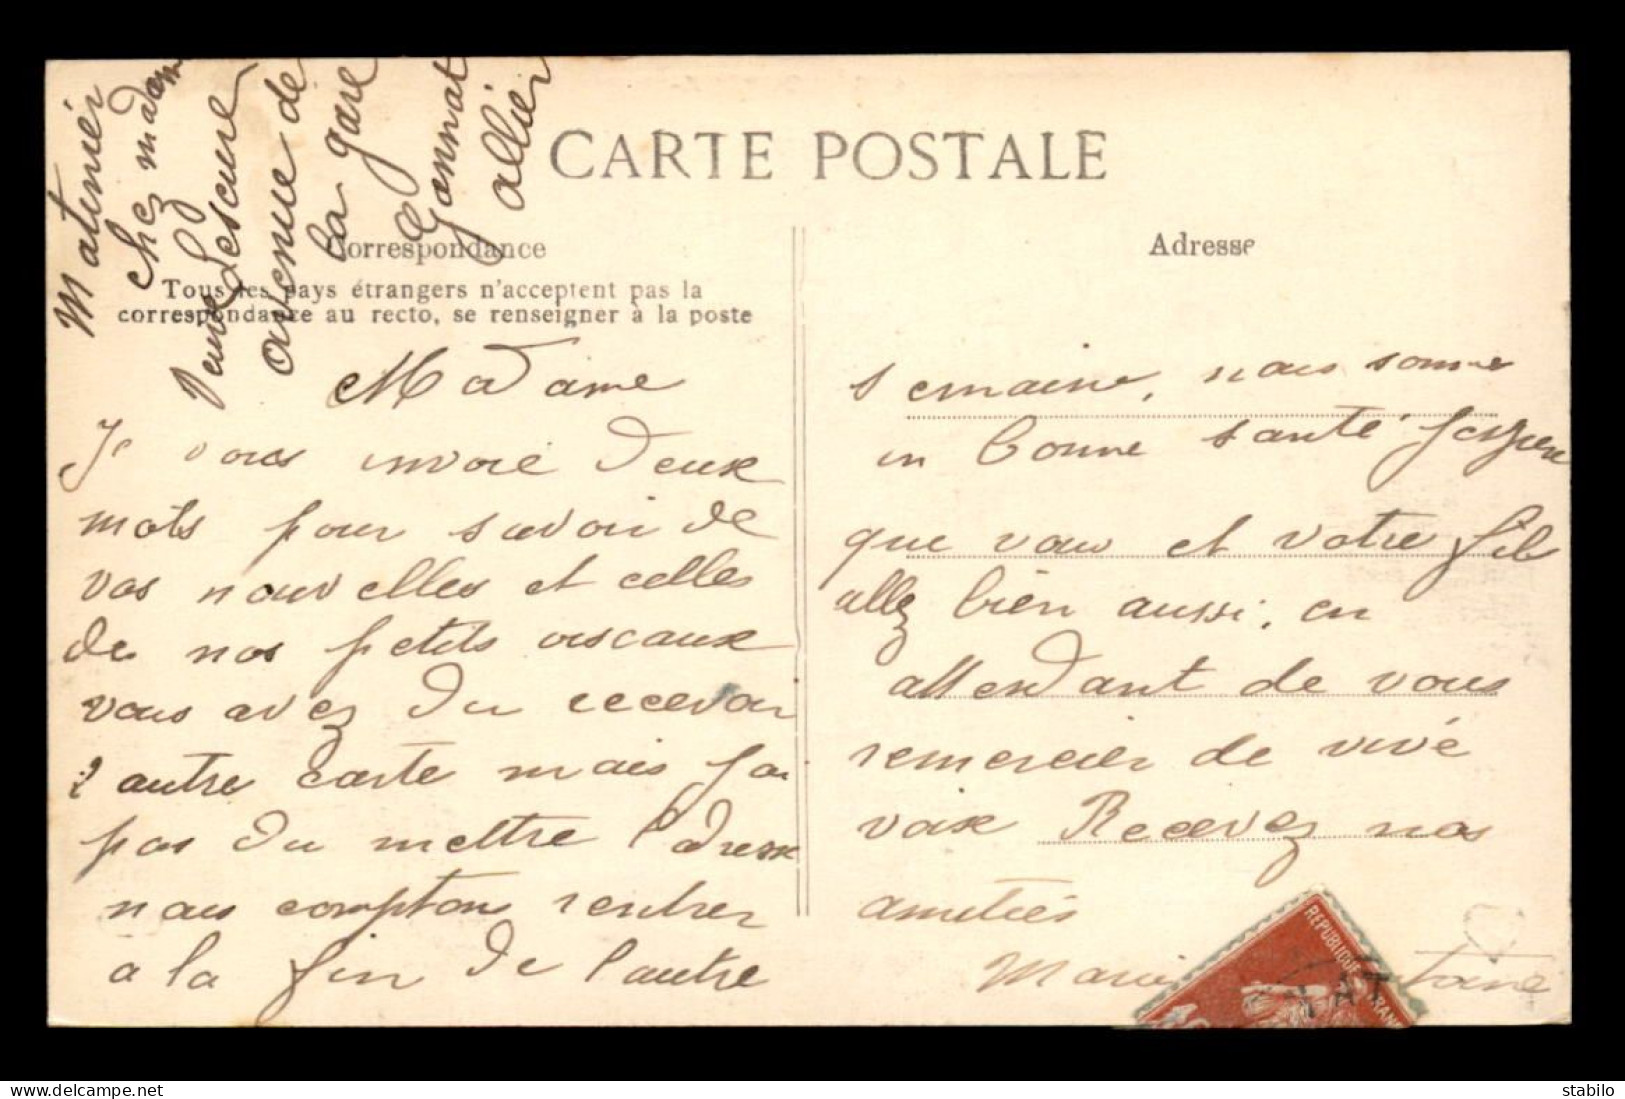 Maturier
chez madame
Veuve Lescure
avenue de
la gare
Gannat
allier
CARTE POSTALE
Correspondance
Tous les pays étrangers n'acceptent pas la
correspondance au recto, se renseigner à la poste
Adresse
Madame
Je vous envoie deux
mots pour savoir de
vos nouvelles et celles
de nos petits oiseaux
vous avez du recevoir
l'autre carte mais j'ai
pas du mettre l'adresse
nous comptons rentrer
a la fin de l'autre
semaine, nous somme
en bonne santé j'espere
que vous et votre fils
allez bien aussi, en
attendant de vous
remercier de vivé
voix Recevez nos
amitiés
Marie Antoine
REPUBLIQUE FRANC
stabilo
https://www.delcampe.net